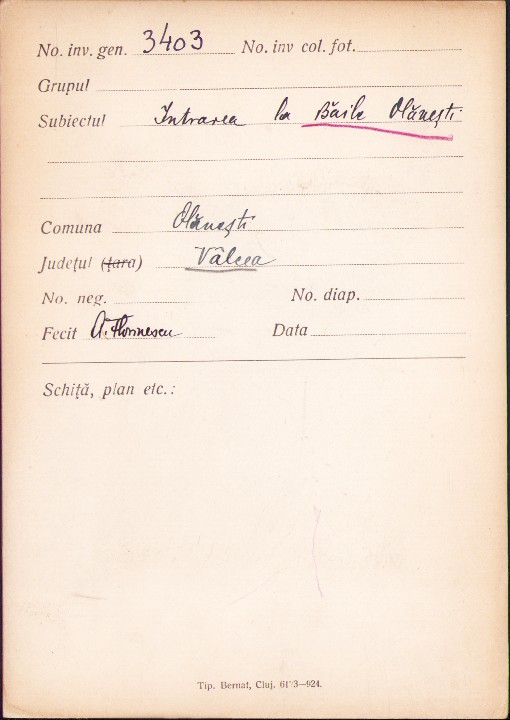 No. inv. gen. 3403 No. inv col. fot.
Grupul
Subiectul Intrarea la Băile Olănești
Comuna Olănești
Județul (țara) Vâlcea
No. neg. No. diap.
Fecit Data
Schiță, plan etc.:
Tip. Bernat, Cluj,